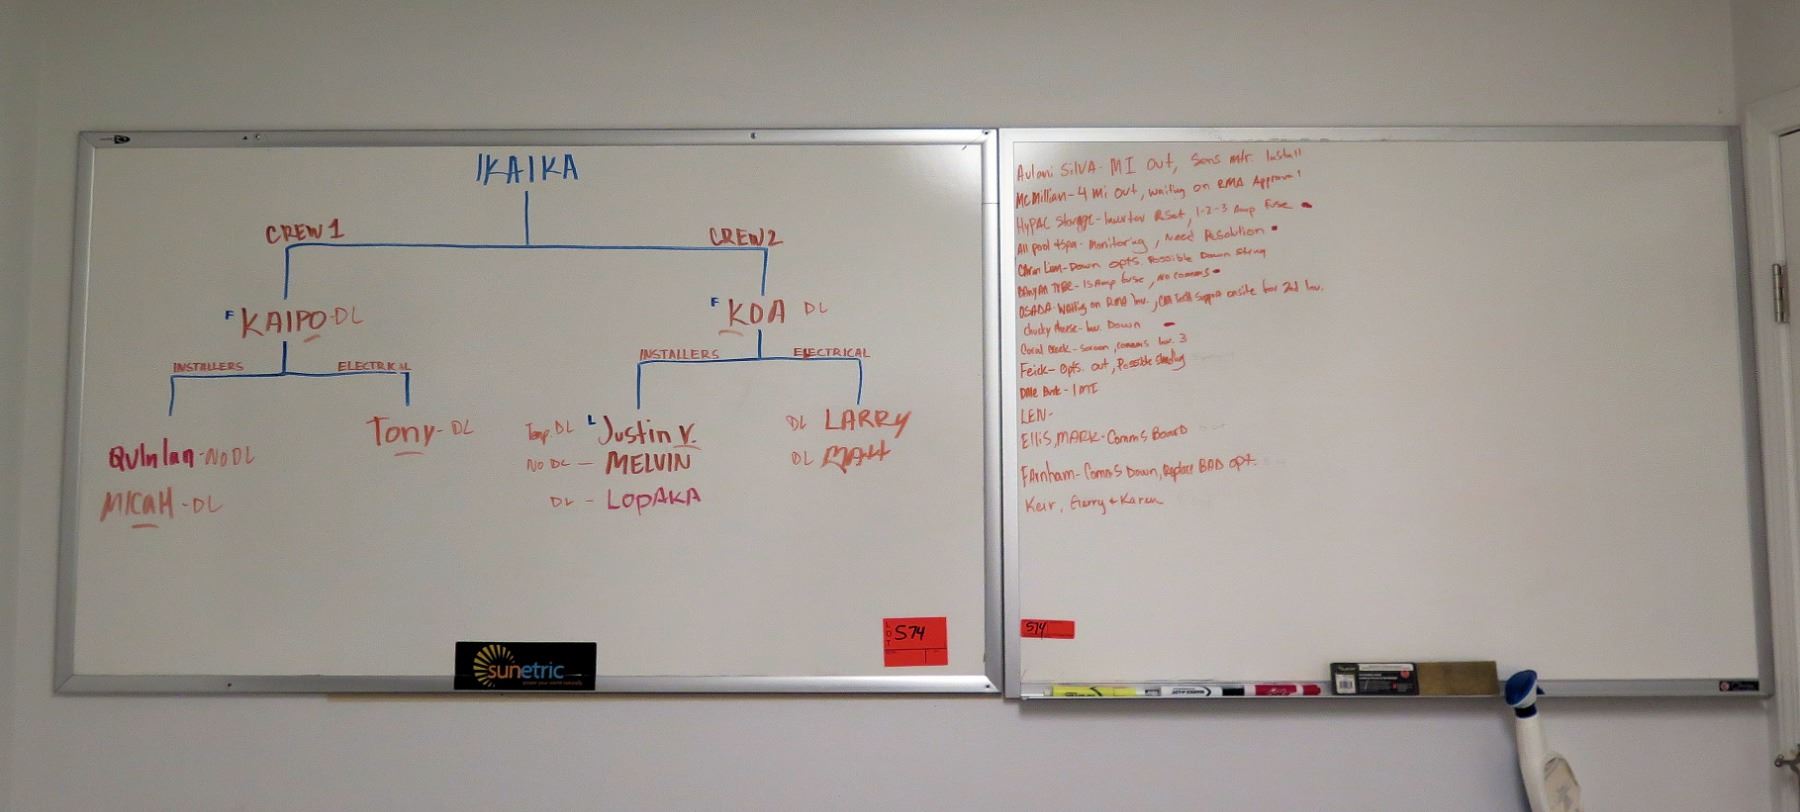 IKAIKA
CREW 1
CREW 2
F KAIPO-DL
F KOA DL
INSTALLERS
ELECTRICAL
INSTALLERS
ELECTRICAL
QuInlan-NoDL
MICaH-DL
Tony-DL
Temp. DL L Justin V.
No DL - MELVIN
DL - LOpAKA
DL LARRY
DL
sunetric
LOT 574
Aulani SilVA- MI Out, Sens mtr. Install
McMillian-4 Mi Out, waiting on RMA Approval
HyPAC Storage-Inverter RSet, 1-2-3 Amp Fuse
All pool +Spa- Monitoring, Need Resolution
Down Opts. Possible Down String
BANYAN TREE- 15 Amp fuse, No comms
OSADA- Waiting on RMA Inv., Tech Support onsite for 2nd Inv.
Chucky Cheese- Inv. Down
Coral Creek- Screen, comms Inv. 3
Feick- Opts. out, Possible Shading
- 1 MI
LEN-
Ellis, MARK-Comms Board
FArnham- Comms Down, Replace BAD opt.
Keir, Gerry + Karen
574